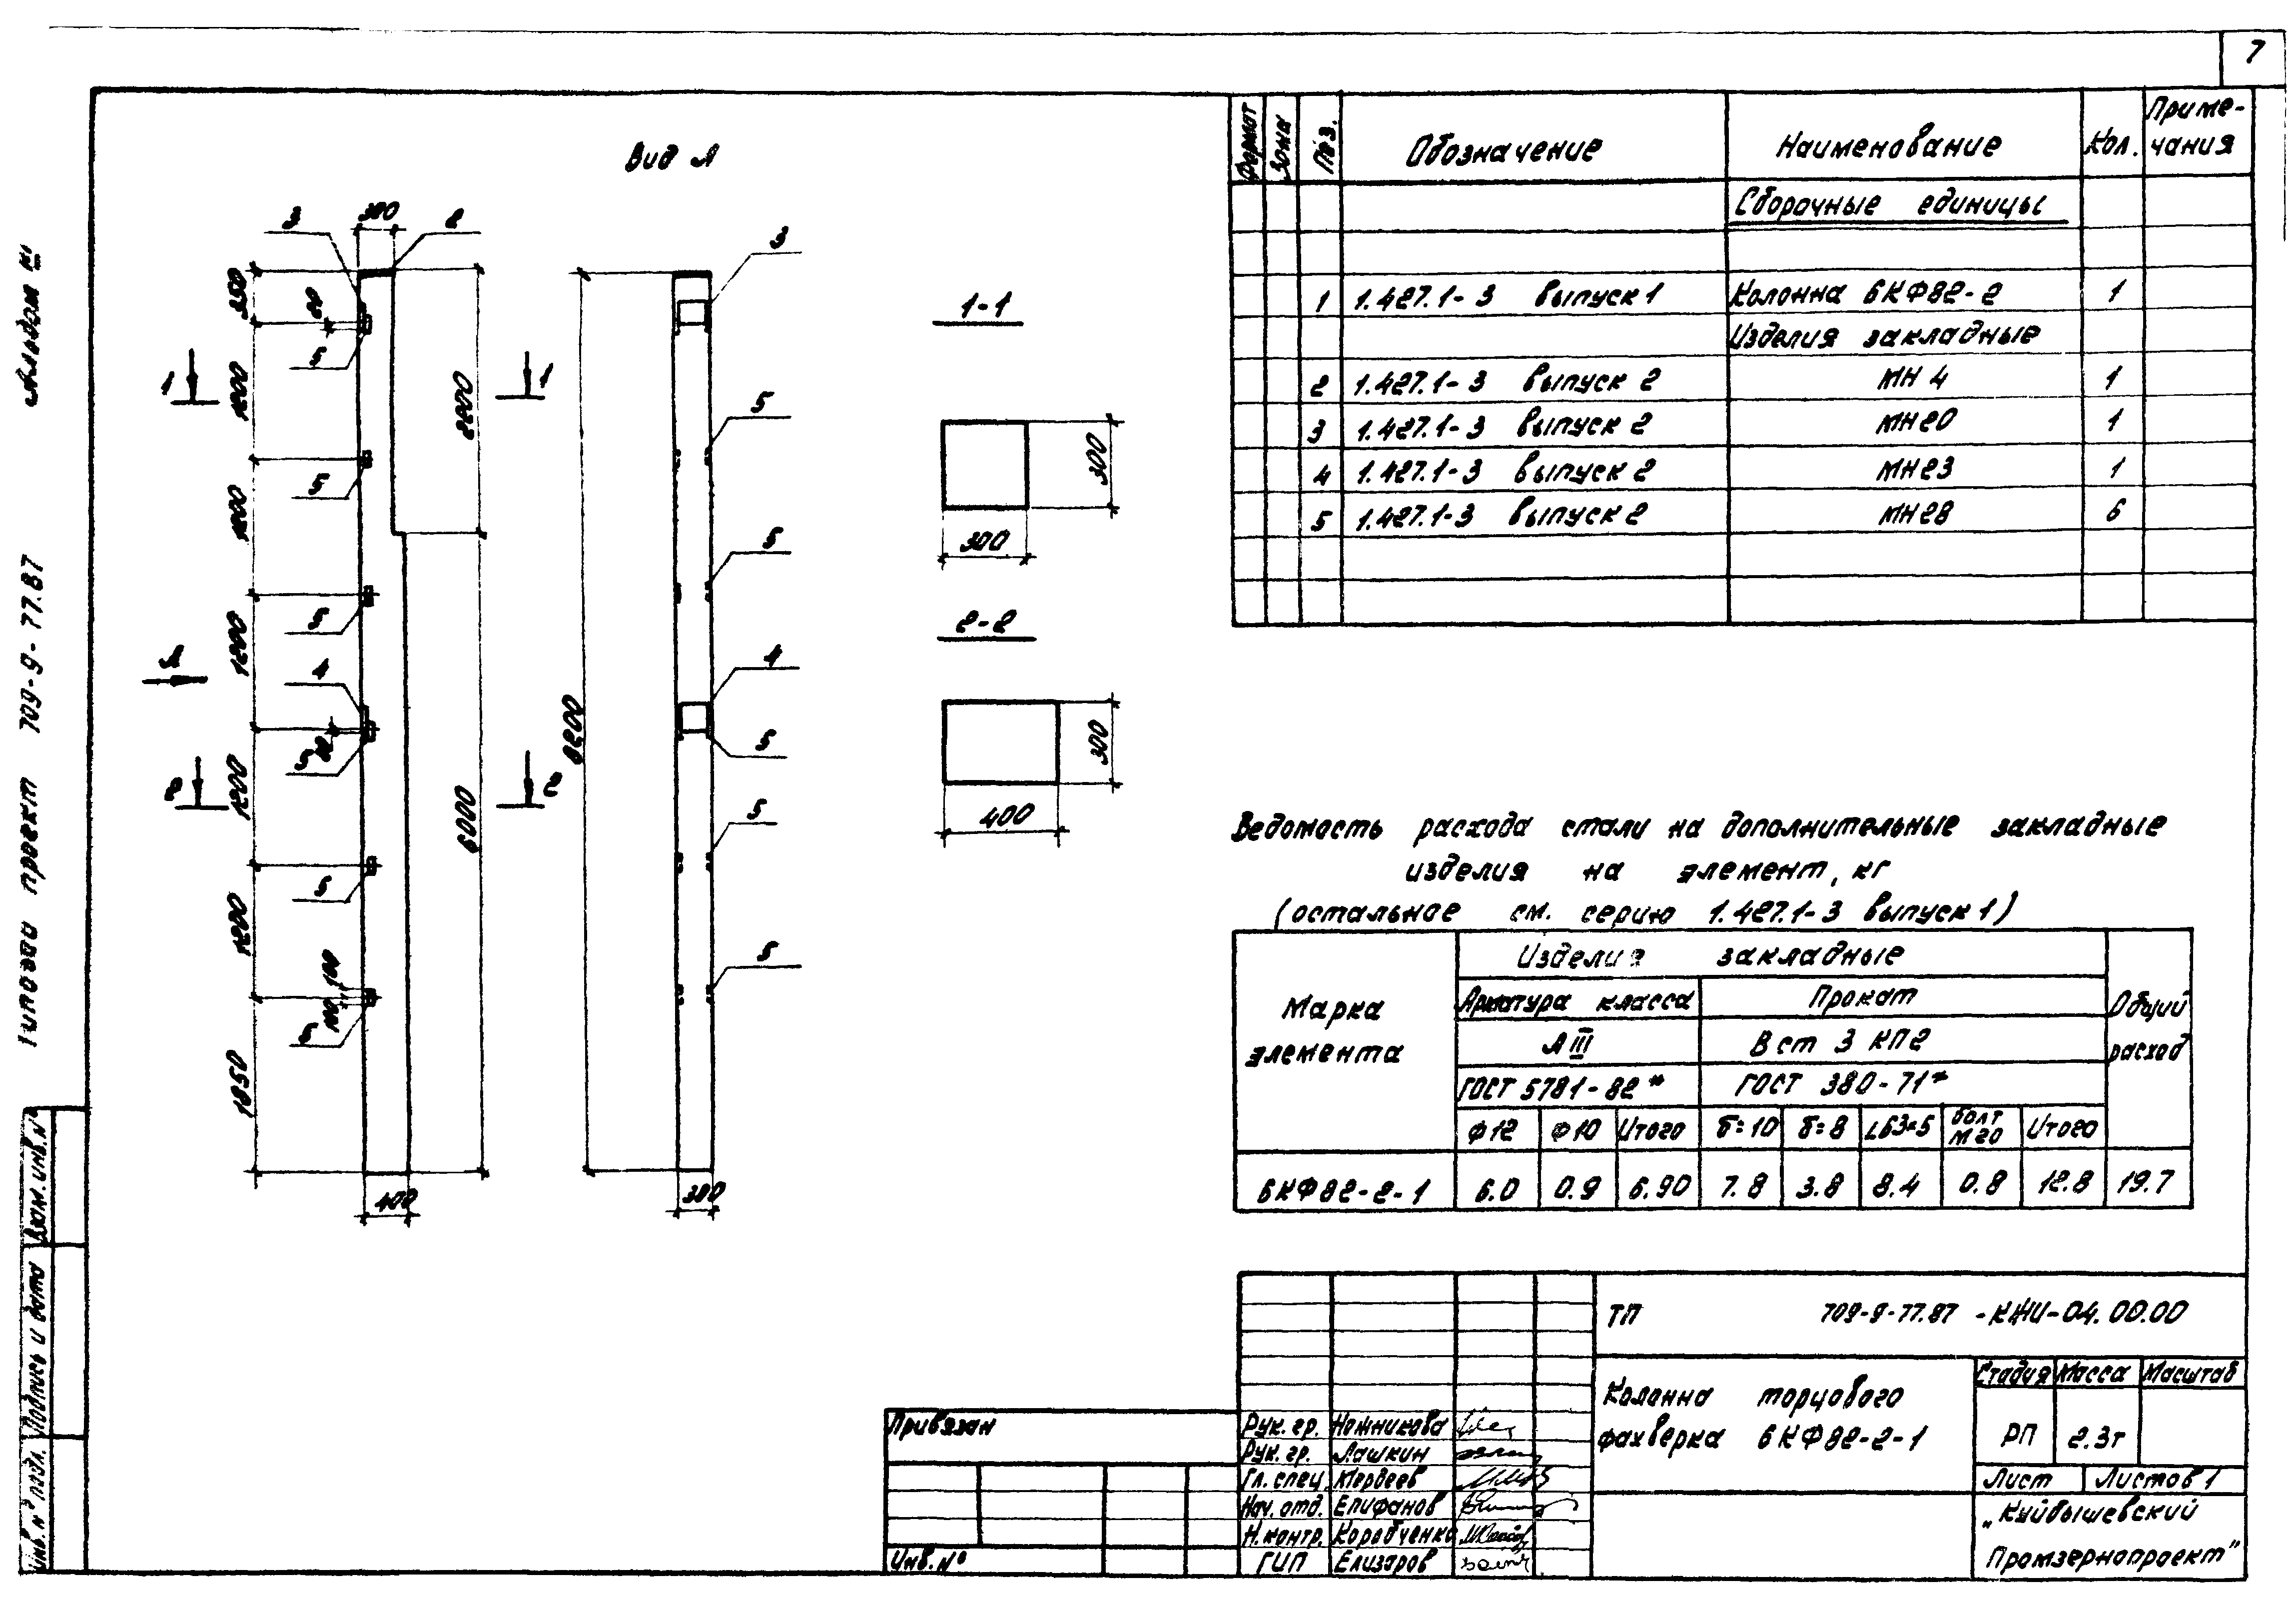 7
Альбом III
Типовой проект 709-9-77.87
Взам.инв.№
Подпись и дата
Инв.№ подл.
Вид А
3
300
2
350
80
5
1
1200
2200
1
5
1200
5
1200
А
4
5
80
2
1200
6000
2
5
1200
100
100
5
1050
400
3
5
5
4
8200
5
5
5
300
1-1
300
300
2-2
300
400
Формат Зона Поз. Обозначение Наименование Кол. Приме-
чания
Сборочные единицы
1 1.427.1-3 выпуск 1 Колонна 6КФ82-2 1
Изделия закладные
2 1.427.1-3 выпуск 2 МН 4 1
3 1.427.1-3 выпуск 2 МН20 1
4 1.427.1-3 выпуск 2 МН23 1
5 1.427.1-3 выпуск 2 МН28 6
Ведомость расхода стали на дополнительные закладные
изделия на элемент, кг
(остальное см. серию 1.427.1-3 выпуск 1)
Марка
элемента
Изделия закладные
Общий
расход
Арматура класса Прокат
А III В ст 3 КП2
ГОСТ 5781-82* ГОСТ 380-71*
Ф12 Ф10 Итого б=10 б=8 L63×5 болт
М20 Итого
6КФ82-2-1 6.0 0.9 6.90 7.8 3.8 8.4 0.8 12.8 19.7
ТП 709-9-77.87 -КЖИ-04.00.00
Колонна торцового
фахверка 6КФ82-2-1
Стадия Масса Масштаб
РП 2.3т
Лист Листов 1
„Куйбышевский
Промзернопроект”
Привязан
Инв.№
Рук. гр. Ножникова
Рук. гр. Лашкин
Гл. спец.
Нач. отд. Епифанов
Н.контр. Коробченко
ГИП Елизаров